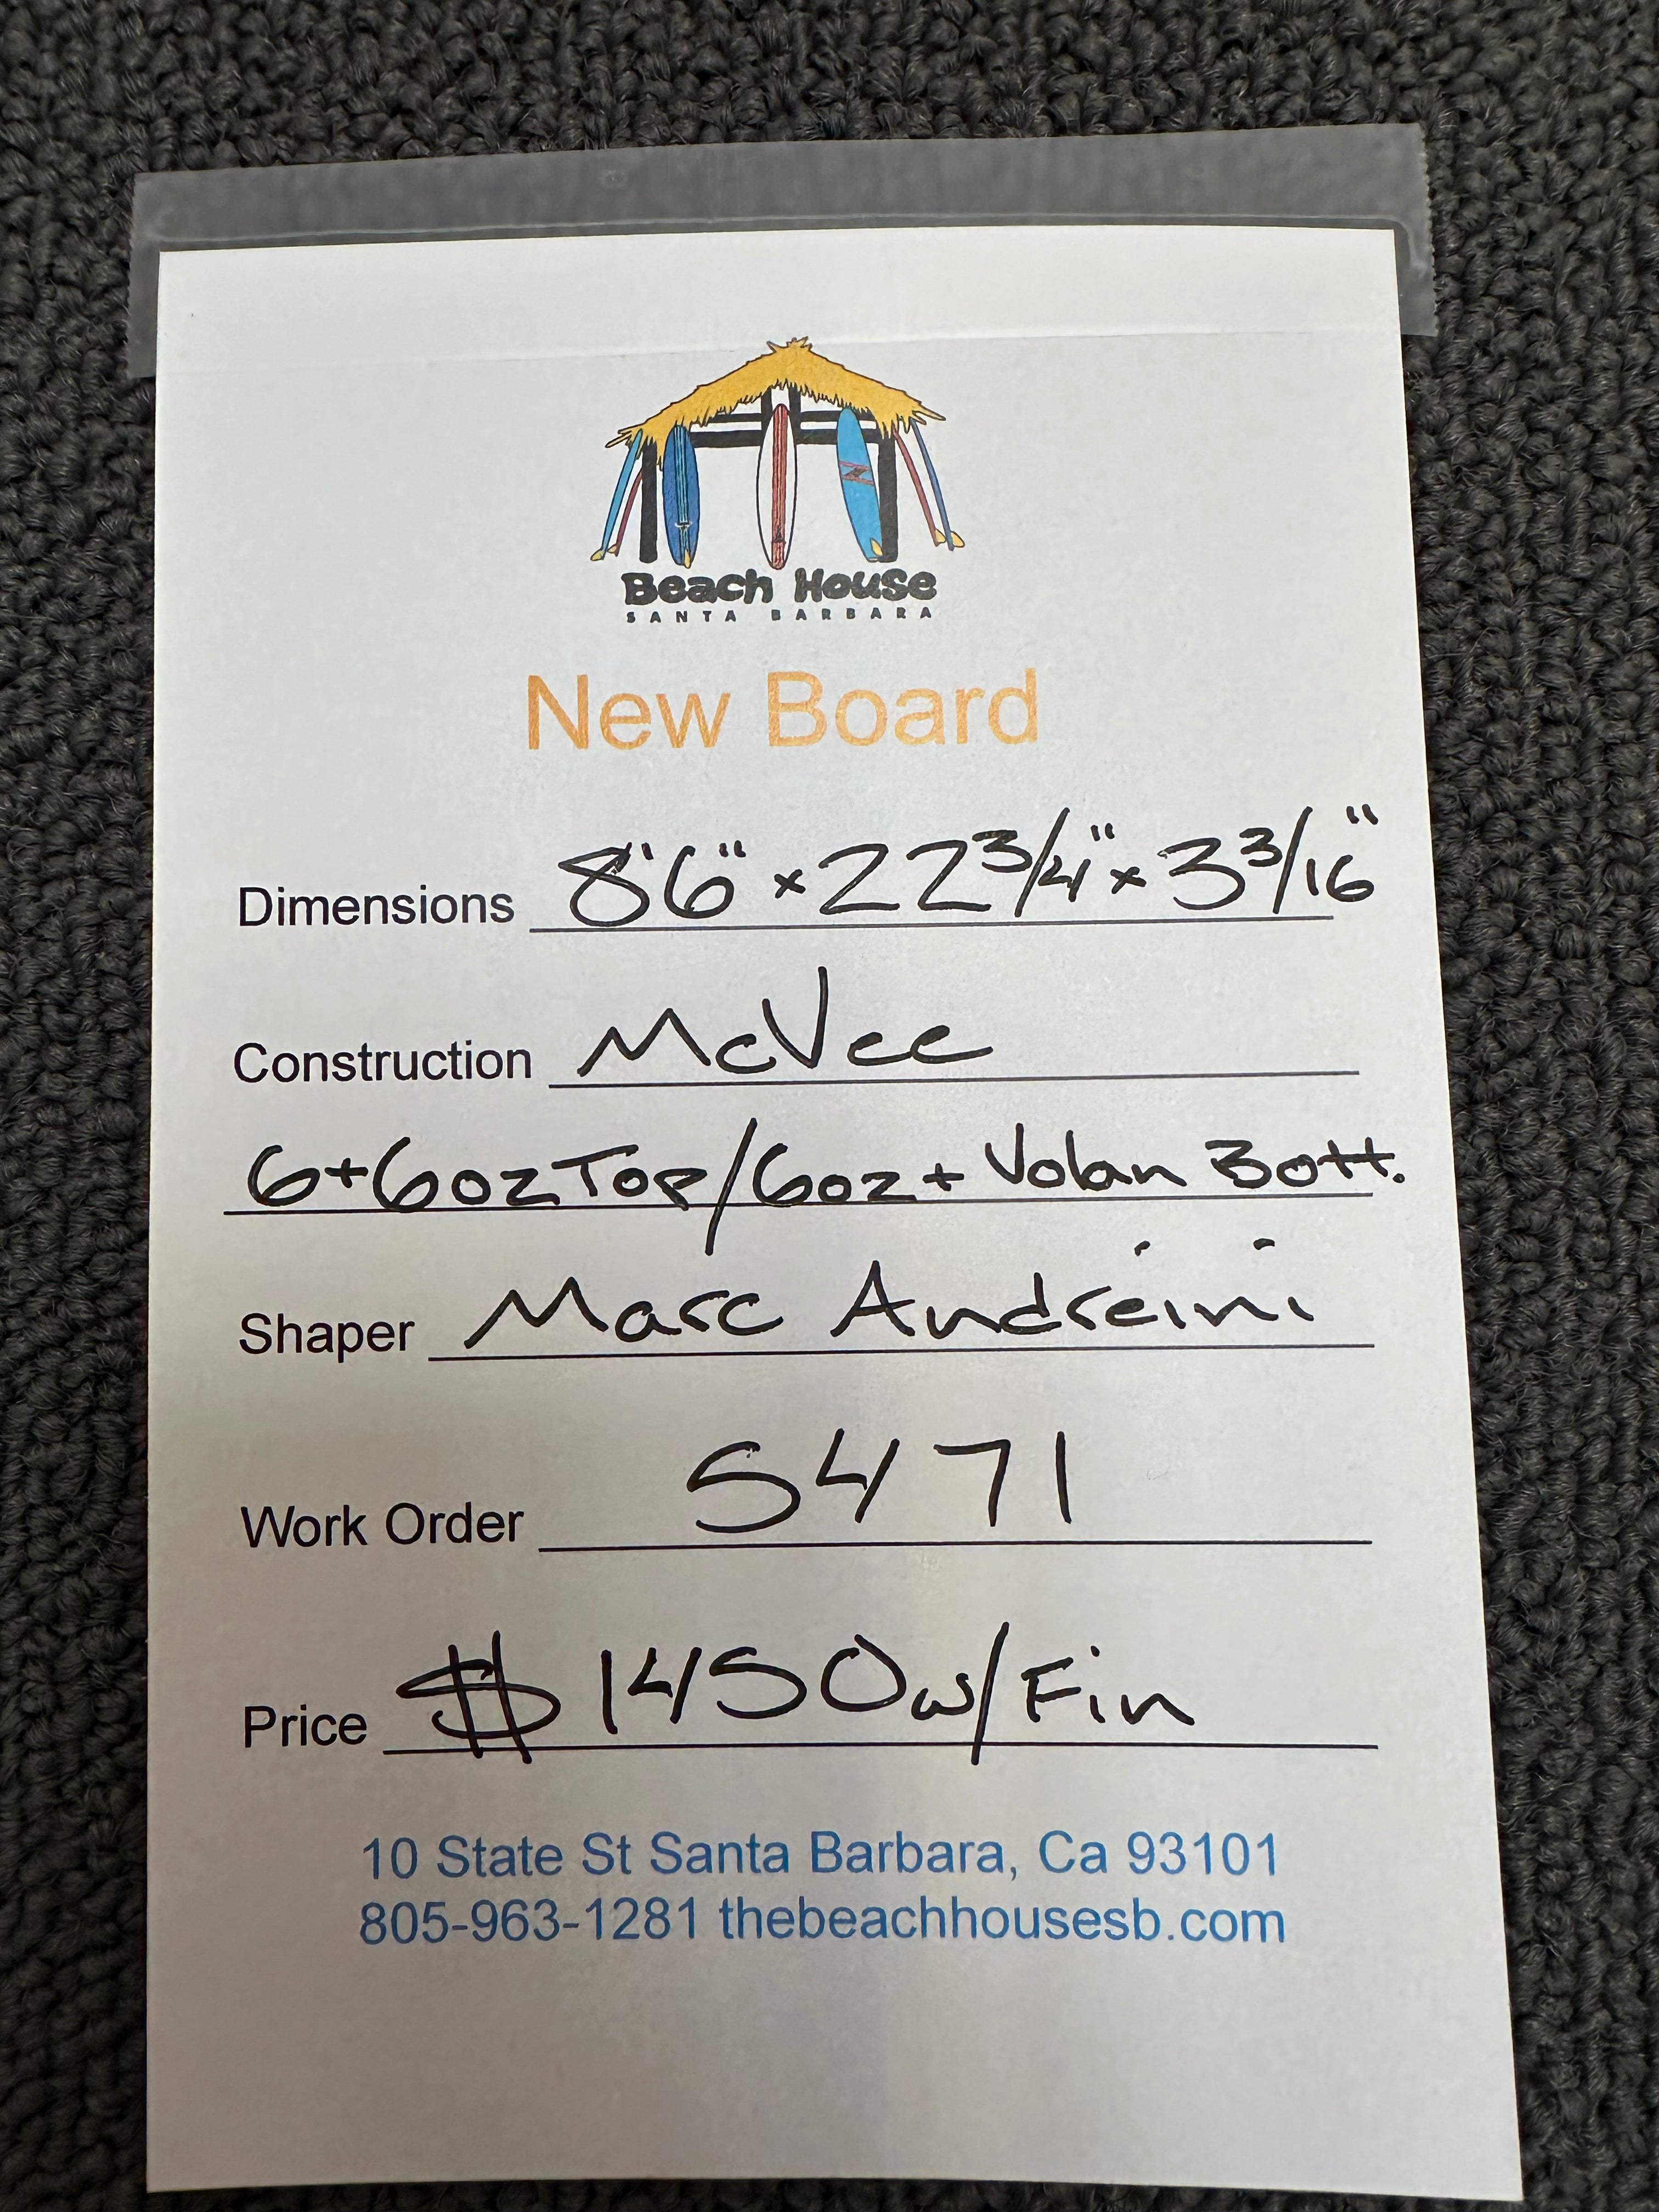 Beach House
SANTA BARBARA
New Board
Dimensions 8'6" x 22 3/4" x 3 3/16"
Construction McVee
6+6oz Top/6oz + Volan Bott.
Shaper Marc Andreini
Work Order 5471
Price $1450 w/Fin
10 State St Santa Barbara, Ca 93101
805-963-1281 thebeachhousesb.com